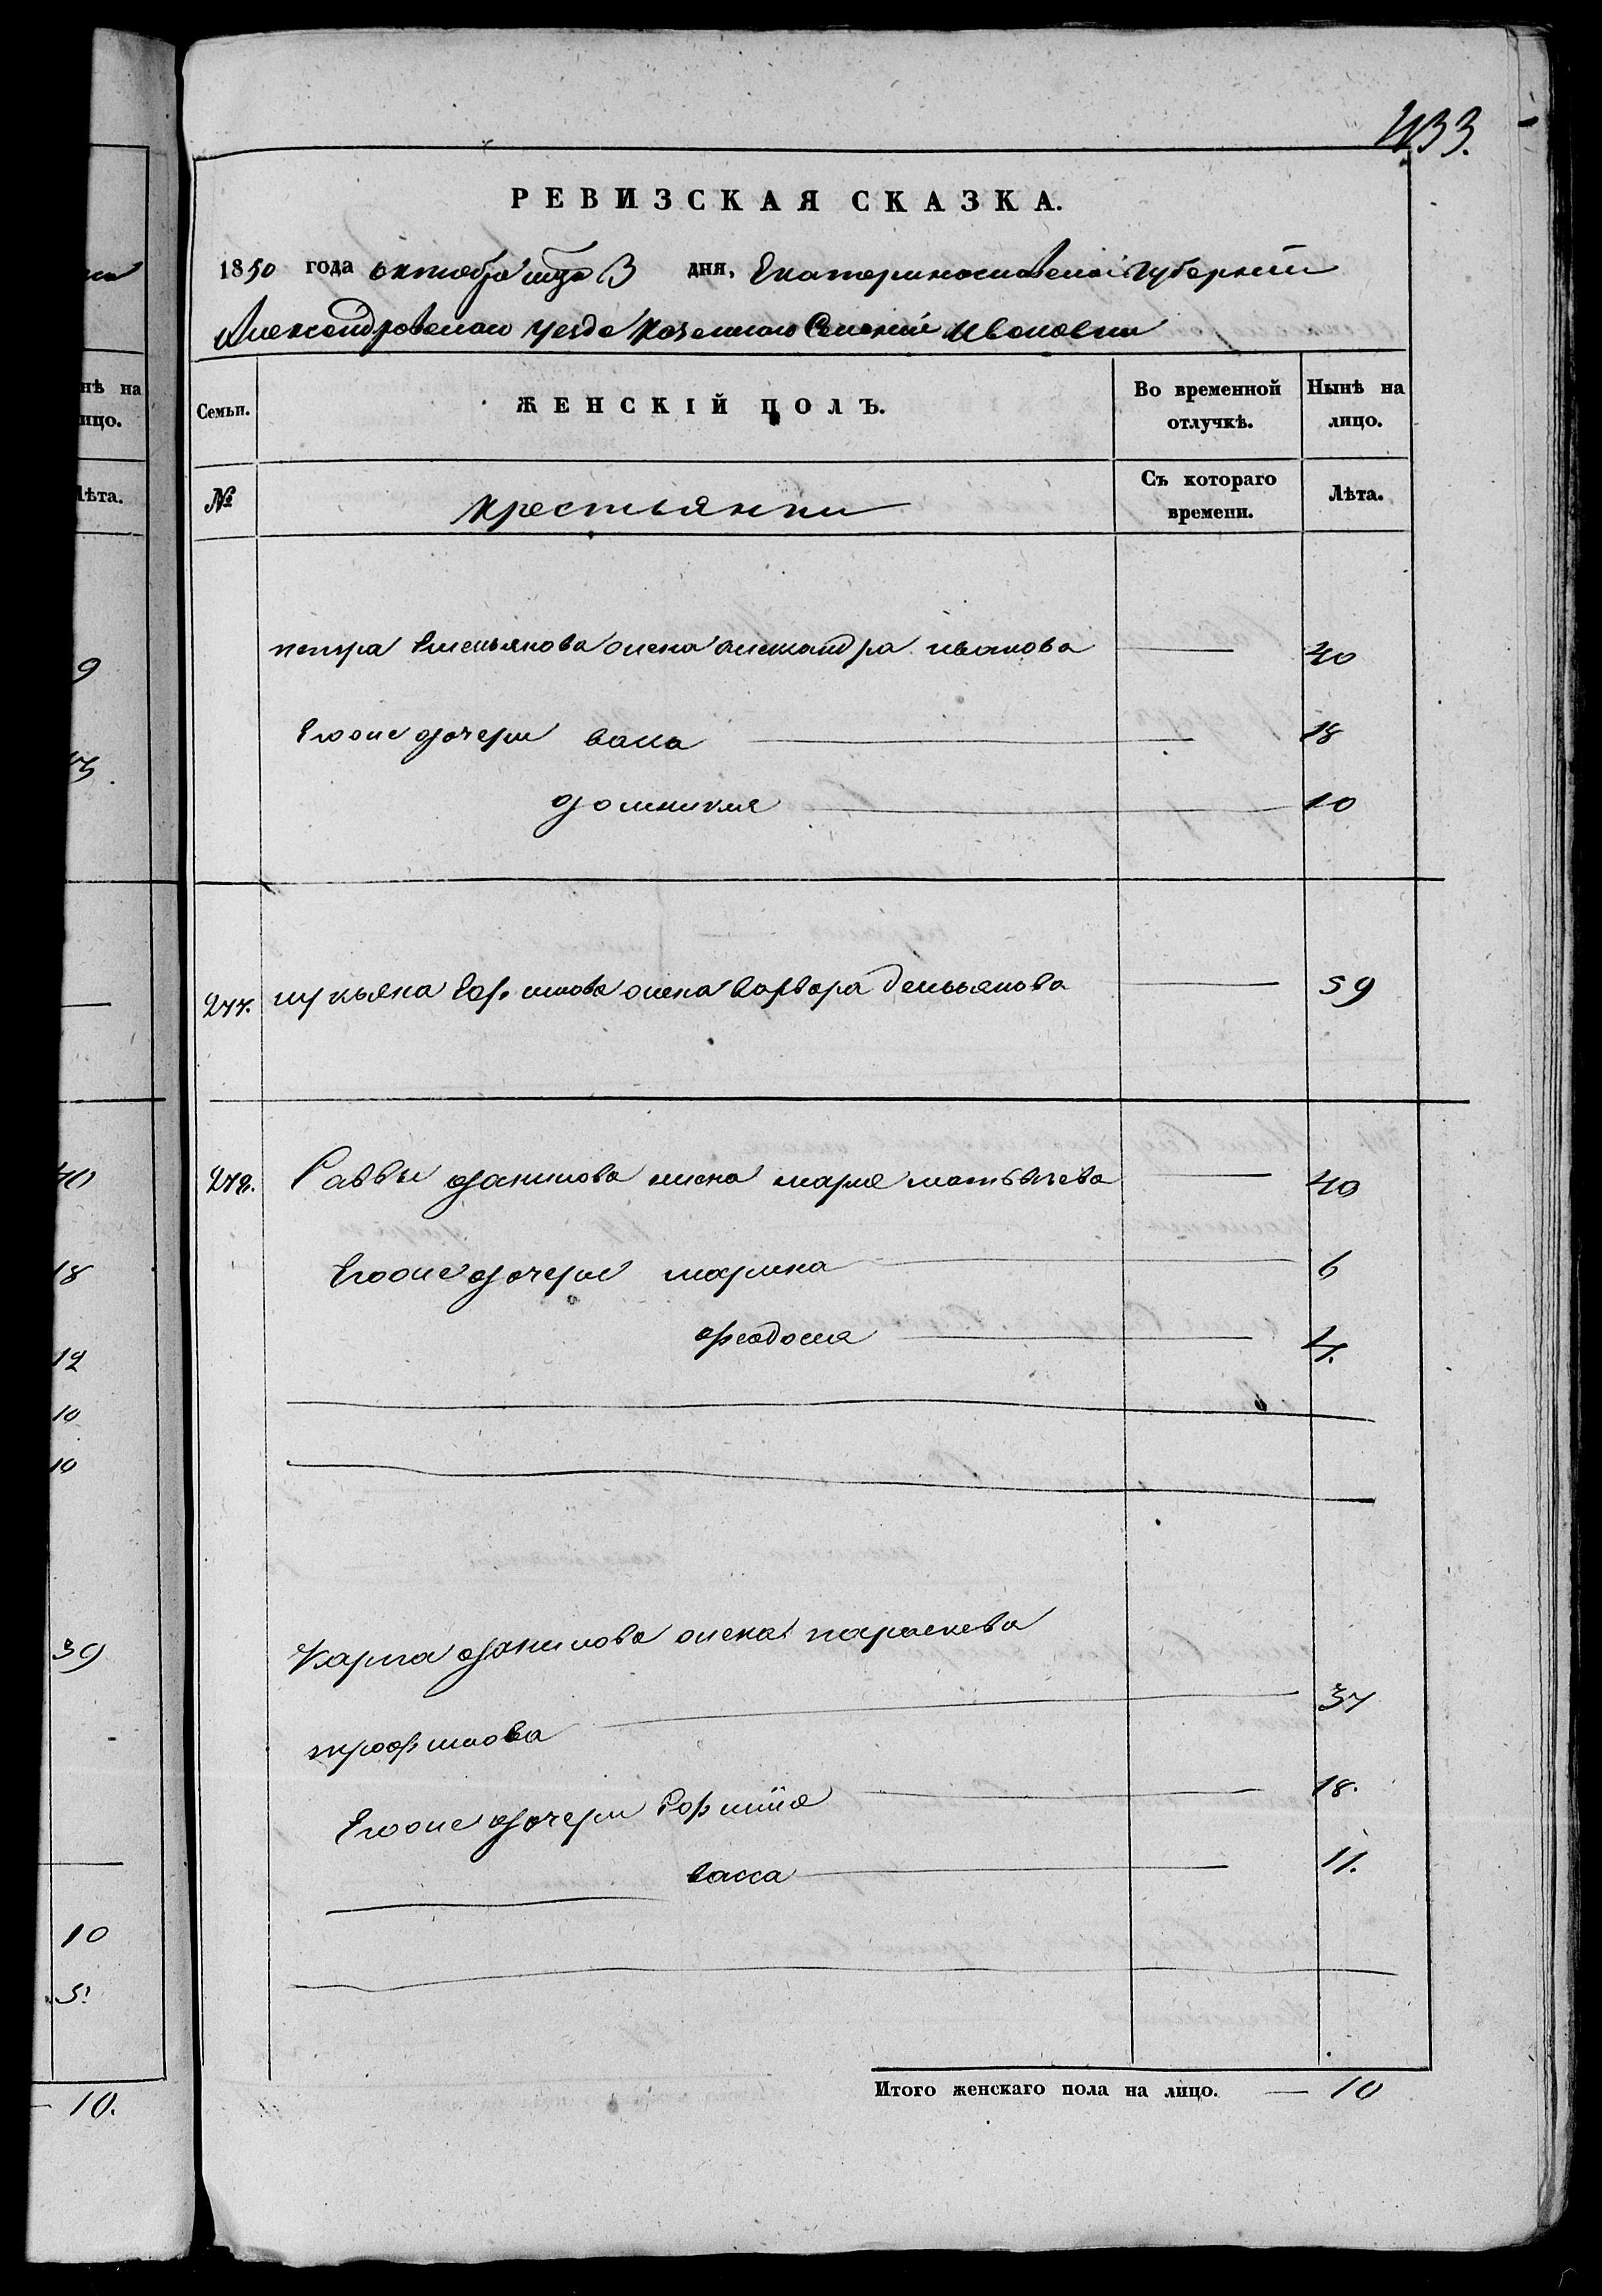 433.
РЕВИЗСКАЯ СКАЗКА.
1850 года октября мца 3 дня, Екатеринославской губернии
Александровского уезда казенного Селения Ивановки
Семьи.
ЖЕНСКІЙ ПОЛЪ.
Во временной отлучкѣ.
Нынѣ на лицо.
№
крестьянки
Съ котораго времени.
Лѣта.
петра Емельянова жена александра иванова 40
Егоже дочери васса 18
домникия 10
277. лукьяна Ефимова жена варвара демьянова 59
278. Саввы данилова жена мария матвѣева 40
Егоже дочери марина 6
феодосия 4.
Карпа данилова жена параскева
трофимова 37
Егоже дочери Ефимия 18.
васса 11.
Итого женскаго пола на лицо. — 10
нѣ на
ицо.
ѣта.
9
40
18
12
10
10
39
10
5.
10.